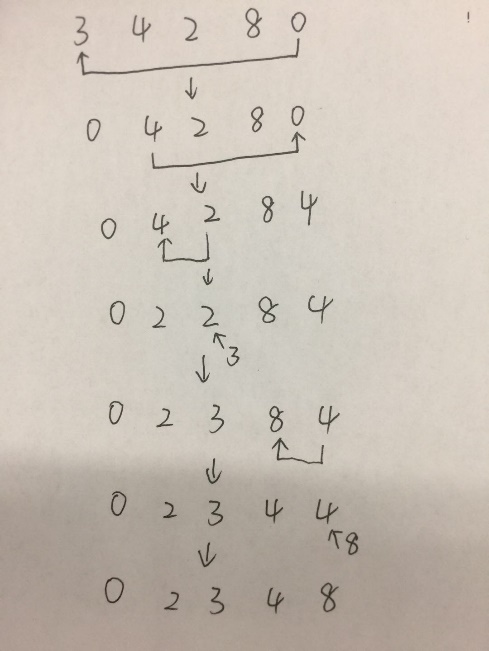 3 4 2 8 0
0 4 2 8 0
0 4 2 8 4
0 2 2 8 4
3
0 2 3 8 4
0 2 3 4 4
8
0 2 3 4 8